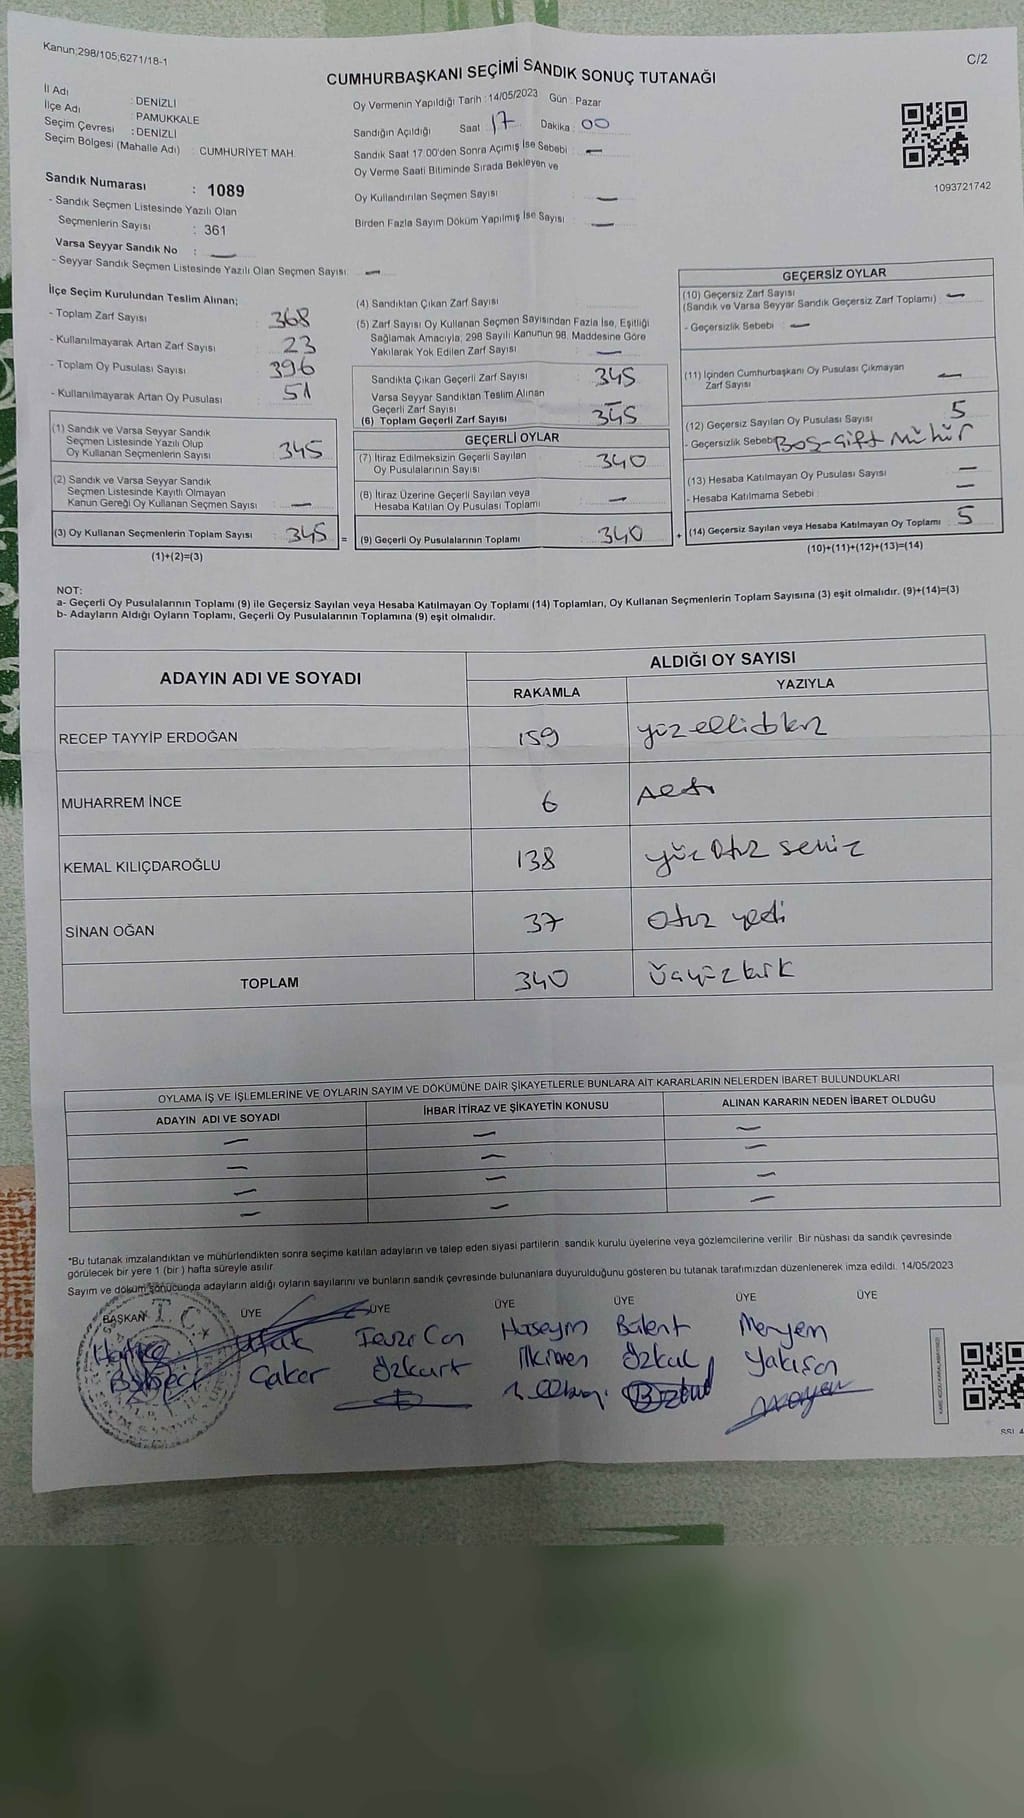 Kanun;298/105;6271/18-1
C/2
CUMHURBAŞKANI SEÇİMİ SANDIK SONUÇ TUTANAĞI
İl Adı : DENİZLİ
İlçe Adı : PAMUKKALE
Seçim Çevresi : DENİZLİ
Seçim Bölgesi (Mahalle Adı) : CUMHURİYET MAH.
Oy Vermenin Yapıldığı Tarih : 14/05/2023 Gün : Pazar
Sandığın Açıldığı Saat : 17 Dakika : 00
Sandık Saat 17:00'den Sonra Açımış İse Sebebi : —
Oy Verme Saati Bitiminde Sırada Bekleyen ve
Oy Kullandırılan Seçmen Sayısı : —
Birden Fazla Sayım Döküm Yapılmış İse Sayısı : —
1093721742
Sandık Numarası : 1089
- Sandık Seçmen Listesinde Yazılı Olan
Seçmenlerin Sayısı : 361
Varsa Seyyar Sandık No : —
- Seyyar Sandık Seçmen Listesinde Yazılı Olan Seçmen Sayısı : —
İlçe Seçim Kurulundan Teslim Alınan;
- Toplam Zarf Sayısı : 368
- Kullanılmayarak Artan Zarf Sayısı : 23
- Toplam Oy Pusulası Sayısı : 396
- Kullanılmayarak Artan Oy Pusulası : 51
(1) Sandık ve Varsa Seyyar Sandık
Seçmen Listesinde Yazılı Olup
Oy Kullanan Seçmenlerin Sayısı : 345
(2) Sandık ve Varsa Seyyar Sandık
Seçmen Listesinde Kayıtlı Olmayan
Kanun Gereği Oy Kullanan Seçmen Sayısı : —
(3) Oy Kullanan Seçmenlerin Toplam Sayısı : 345 =
(1)+(2)=(3)
(4) Sandıktan Çıkan Zarf Sayısı :
(5) Zarf Sayısı Oy Kullanan Seçmen Sayısından Fazla İse, Eşitliği
Sağlamak Amacıyla; 298 Sayılı Kanunun 98. Maddesine Göre
Yakılarak Yok Edilen Zarf Sayısı : —
Sandıkta Çıkan Geçerli Zarf Sayısı : 345
Varsa Seyyar Sandıktan Teslim Alınan
Geçerli Zarf Sayısı :
(6) Toplam Geçerli Zarf Sayısı : 345
GEÇERLİ OYLAR
(7) İtiraz Edilmeksizin Geçerli Sayılan
Oy Pusulalarının Sayısı : 340
(8) İtiraz Üzerine Geçerli Sayılan veya
Hesaba Katılan Oy Pusulası Toplamı : —
(9) Geçerli Oy Pusulalarının Toplamı : 340 +
GEÇERSİZ OYLAR
(10) Geçersiz Zarf Sayısı
(Sandık ve Varsa Seyyar Sandık Geçersiz Zarf Toplamı) : —
- Geçersizlik Sebebi : —
(11) İçinden Cumhurbaşkanı Oy Pusulası Çıkmayan
Zarf Sayısı : —
(12) Geçersiz Sayılan Oy Pusulası Sayısı : 5
- Geçersizlik Sebebi : Boş-Çift Mühür
(13) Hesaba Katılmayan Oy Pusulası Sayısı : —
- Hesaba Katılmama Sebebi : —
(14) Geçersiz Sayılan veya Hesaba Katılmayan Oy Toplamı : 5
(10)+(11)+(12)+(13)=(14)
NOT:
a- Geçerli Oy Pusulalarının Toplamı (9) ile Geçersiz Sayılan veya Hesaba Katılmayan Oy Toplamı (14) Toplamları, Oy Kullanan Seçmenlerin Toplam Sayısına (3) eşit olmalıdır. (9)+(14)=(3)
b- Adayların Aldığı Oyların Toplamı, Geçerli Oy Pusulalarının Toplamına (9) eşit olmalıdır.
ADAYIN ADI VE SOYADI ALDIĞI OY SAYISI
RAKAMLA YAZIYLA
RECEP TAYYİP ERDOĞAN 159 yüzellidokuz
MUHARREM İNCE 6 Altı
KEMAL KILIÇDAROĞLU 138 yüz otuz sekiz
SİNAN OĞAN 37 otuz yedi
TOPLAM 340 Üçyüzkırk
OYLAMA İŞ VE İŞLEMLERİNE VE OYLARIN SAYIM VE DÖKÜMÜNE DAİR ŞİKAYETLERLE BUNLARA AİT KARARLARIN NELERDEN İBARET BULUNDUKLARI
ADAYIN ADI VE SOYADI İHBAR İTİRAZ VE ŞİKAYETİN KONUSU ALINAN KARARIN NEDEN İBARET OLDUĞU
— — —
— — —
— — —
— — —
*Bu tutanak imzalandıktan ve mühürlendikten sonra seçime katılan adayların ve talep eden siyasi partilerin sandık kurulu üyelerine veya gözlemcilerine verilir. Bir nüshası da sandık çevresinde
görülecek bir yere 1 (bir) hafta süreyle asılır.
Sayım ve döküm sonucunda adayların aldığı oyların sayılarını ve bunların sandık çevresinde bulunanlara duyurulduğunu gösteren bu tutanak tarafımızdan düzenlenerek imza edildi. 14/05/2023
BAŞKAN ÜYE ÜYE ÜYE ÜYE ÜYE ÜYE
T.C.
Ufuk Fevzi Can Hüseyin Bülent Meryem
Çakar Özkurt İlkimen Özkul Yakışan